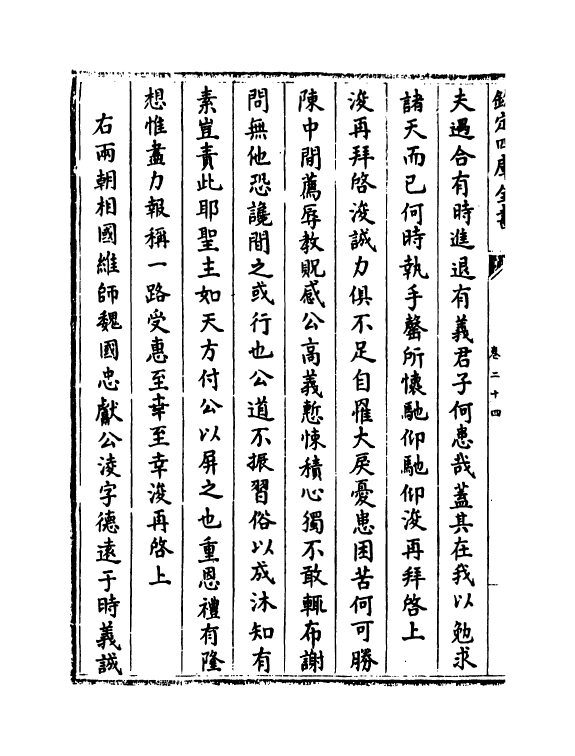 欽定四庫全書
卷二十四
夫遇合有時進退有義君子何患哉蓋其在我以勉求
諸天而已何時執手罄所懷馳仰馳仰浚再拜啓上
浚再拜啓浚誠力俱不足自罹大戾憂患困苦何可勝
陳中間薦辱教貺感公高義慙悚積心獨不敢輒布謝
問無他恐讒間之或行也公道不振習俗以成沐知有
素豈責此耶聖主如天方付公以屏之也重恩禮有隆
想惟盡力報稱一路受惠至幸至幸浚再啓上
右兩朝相國維師魏國忠獻公浚字德遠于時義誠